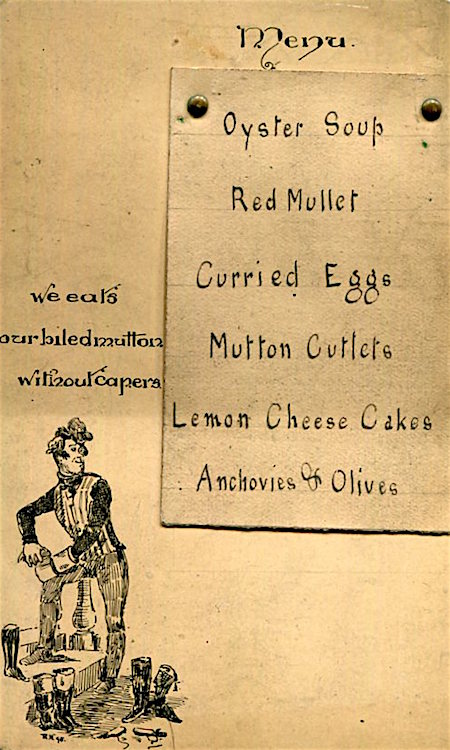 Menu.
Oyster Soup
Red Mullet
Curried Eggs
Mutton Cutlets
Lemon Cheese Cakes
Anchovies & Olives
We eats
our biled mutton
without capers